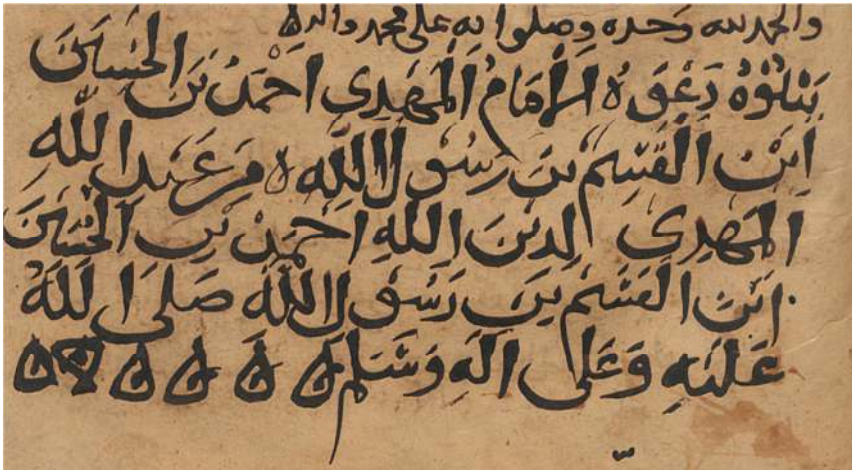 والحمد لله وحده وصلواته على محمد واله
يتلوه دعوة الامام المهدي احمد بن الحسين
ابن القسم بن رسول الله ه من عبد الله
المهدي لدين الله احمد بن الحسين
ابن القسم بن رسول الله صلى الله
عليه وعلى اله وسلم ه ه ه ه